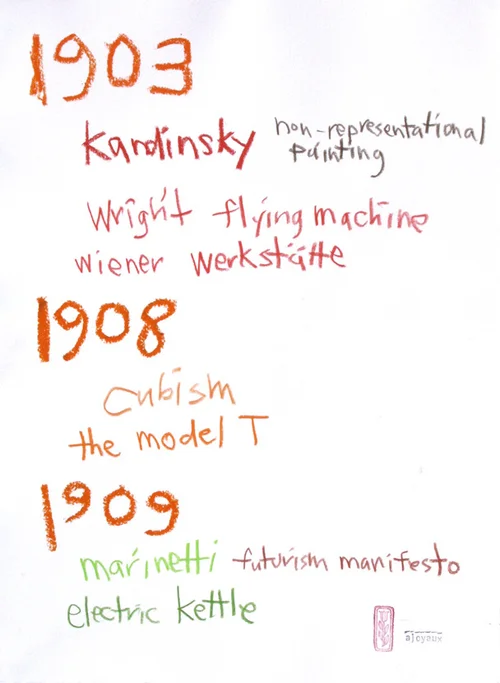 1903
Kandinsky non-representational
painting
Wright flying machine
wiener werkstätte
1908
cubism
the model T
1909
marinetti futurism manifesto
electric kettle